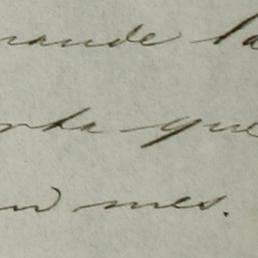 mande la
rta que
un mes.